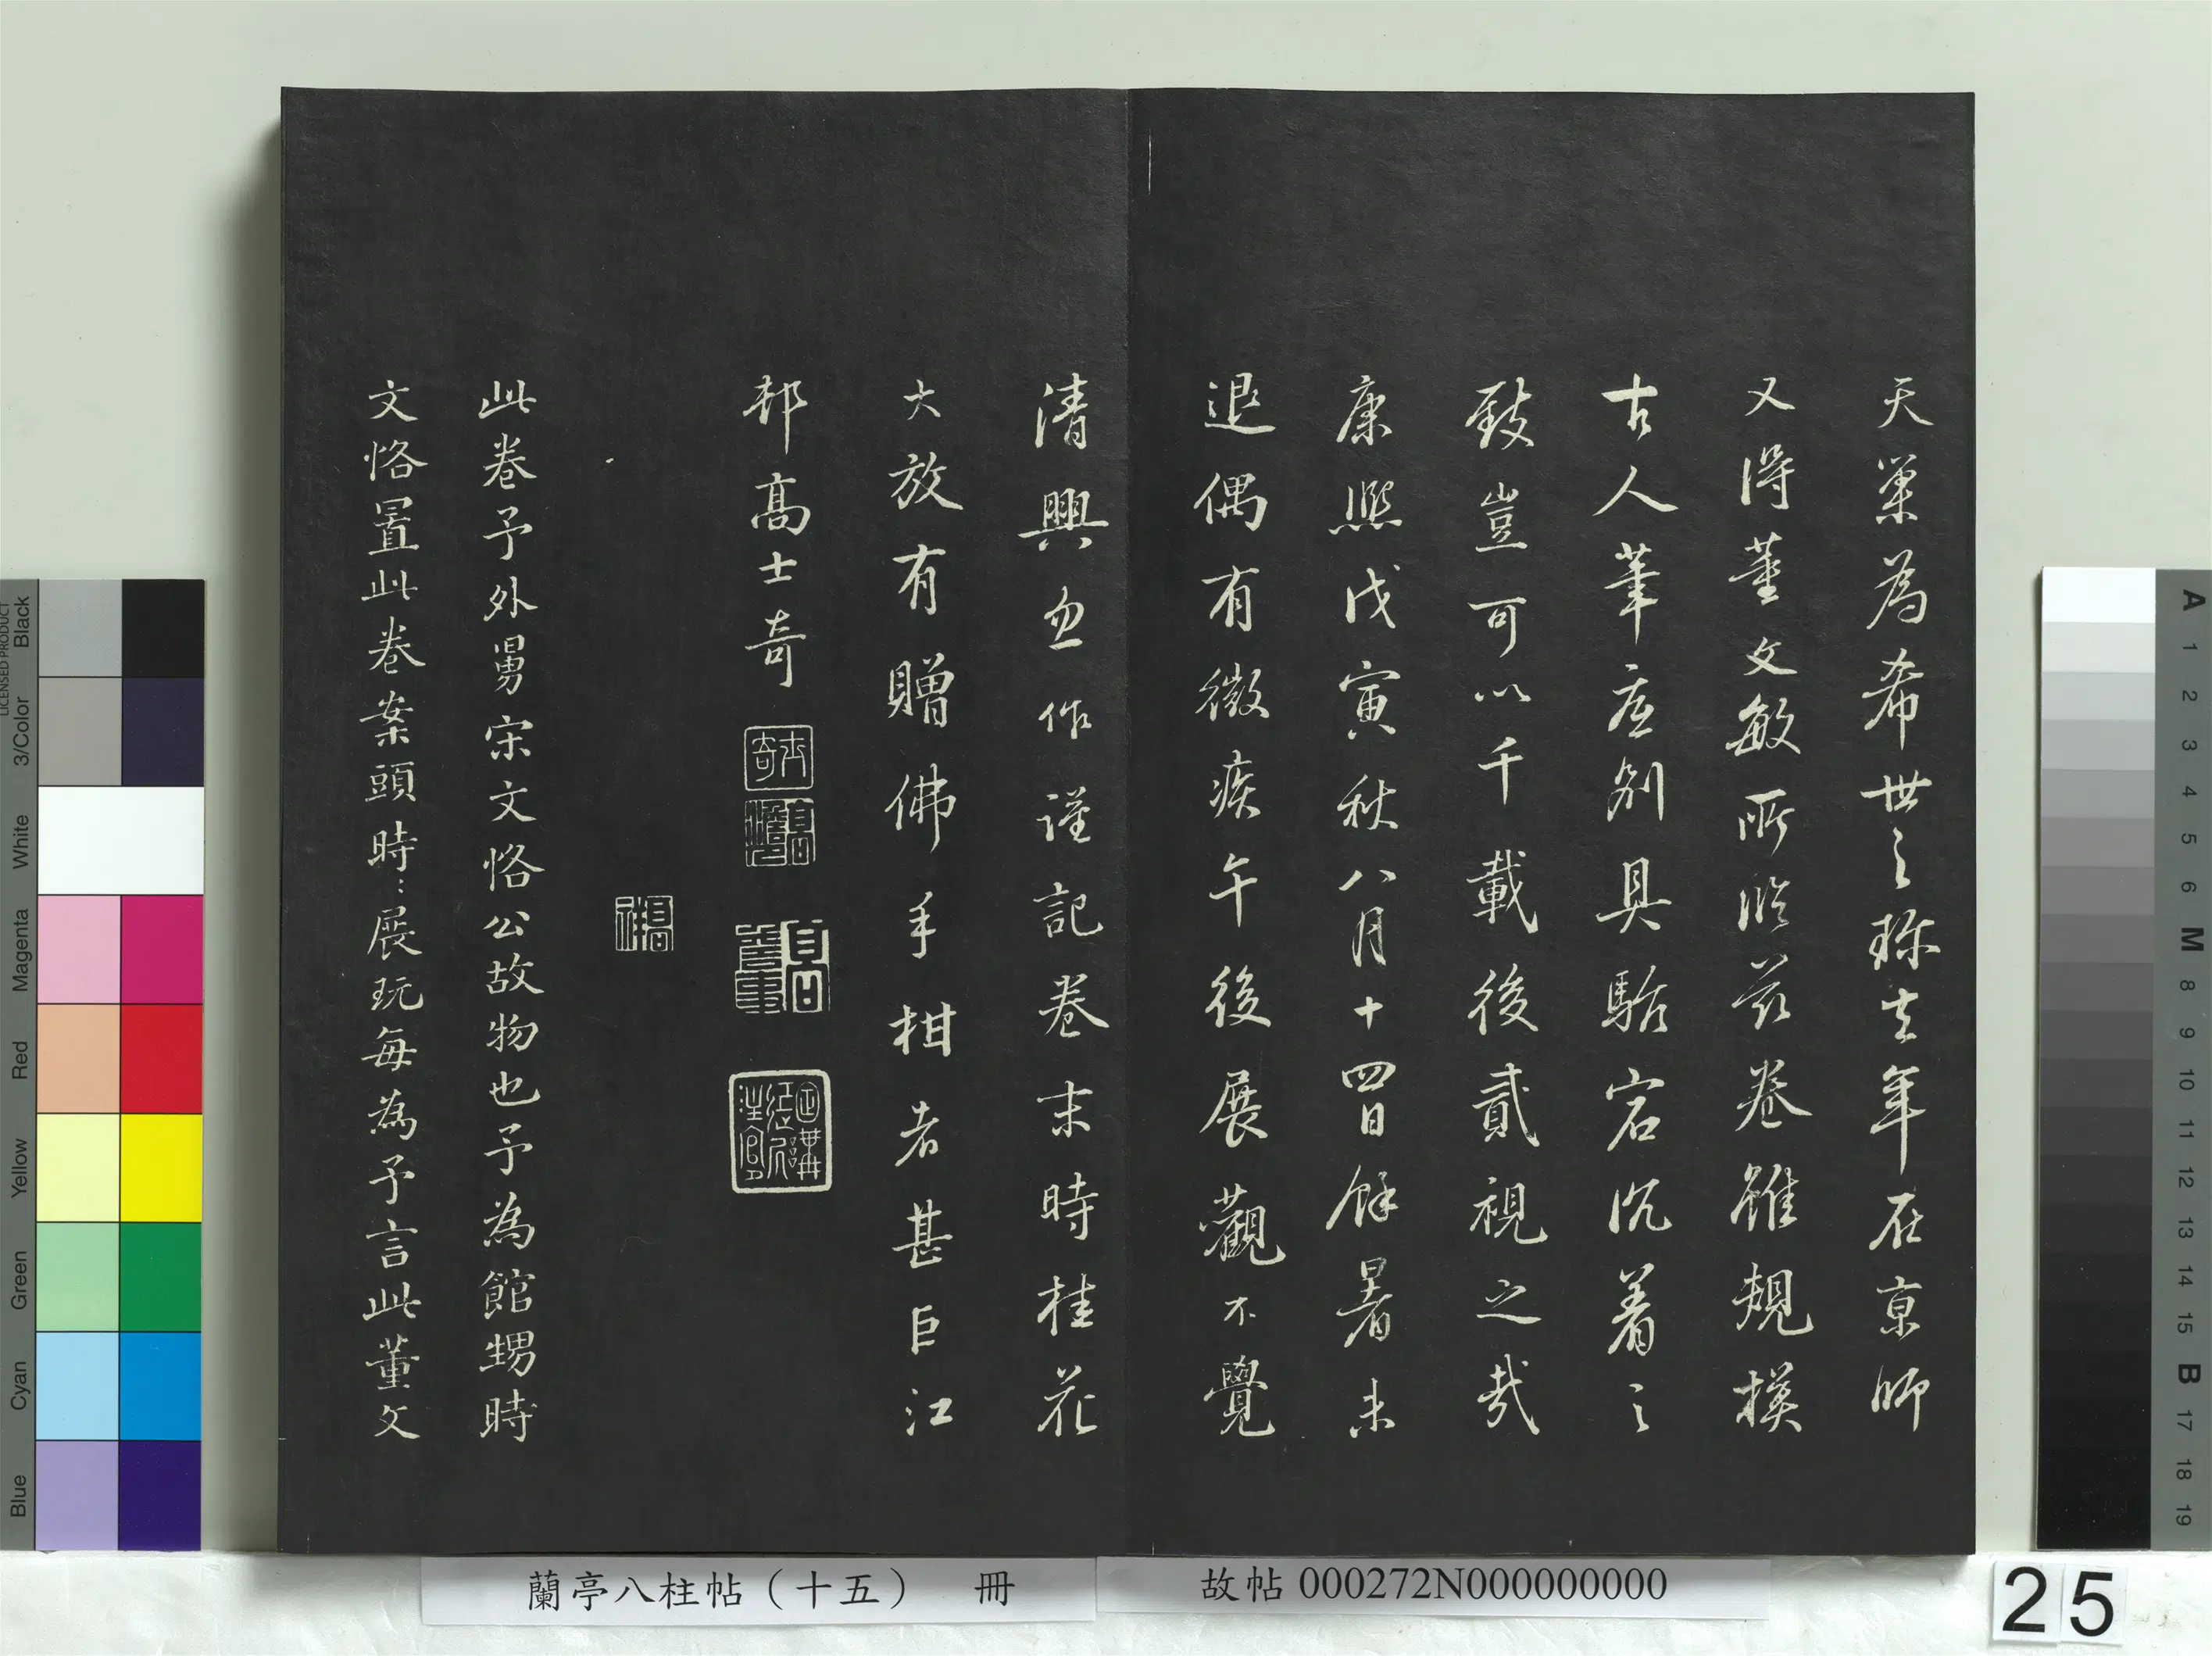 天巢為希世之珎去年在京師
又得董文敏所臨茲卷雖規模
古人筆意別具駘宕沉着之
致豈可以千載後貳視之哉
康熙戊寅秋八月十四日餘暑未
退偶有微疾午後展觀不覺
清興忽作謹記卷末時桂花
大放有贈佛手柑者甚巨江
邨高士奇
此卷予外舅宋文恪公故物也予為館甥時
文恪置此卷案頭時:展玩每為予言此董文
蘭亭八柱帖（十五） 冊
故帖 000272N000000000
25
LICENSED PRODUCT
Black
3/Color
White
Magenta
Red
Yellow
Green
Cyan
Blue
A
1
2
3
4
5
6
M
8
9
10
11
12
13
14
15
B
17
18
19